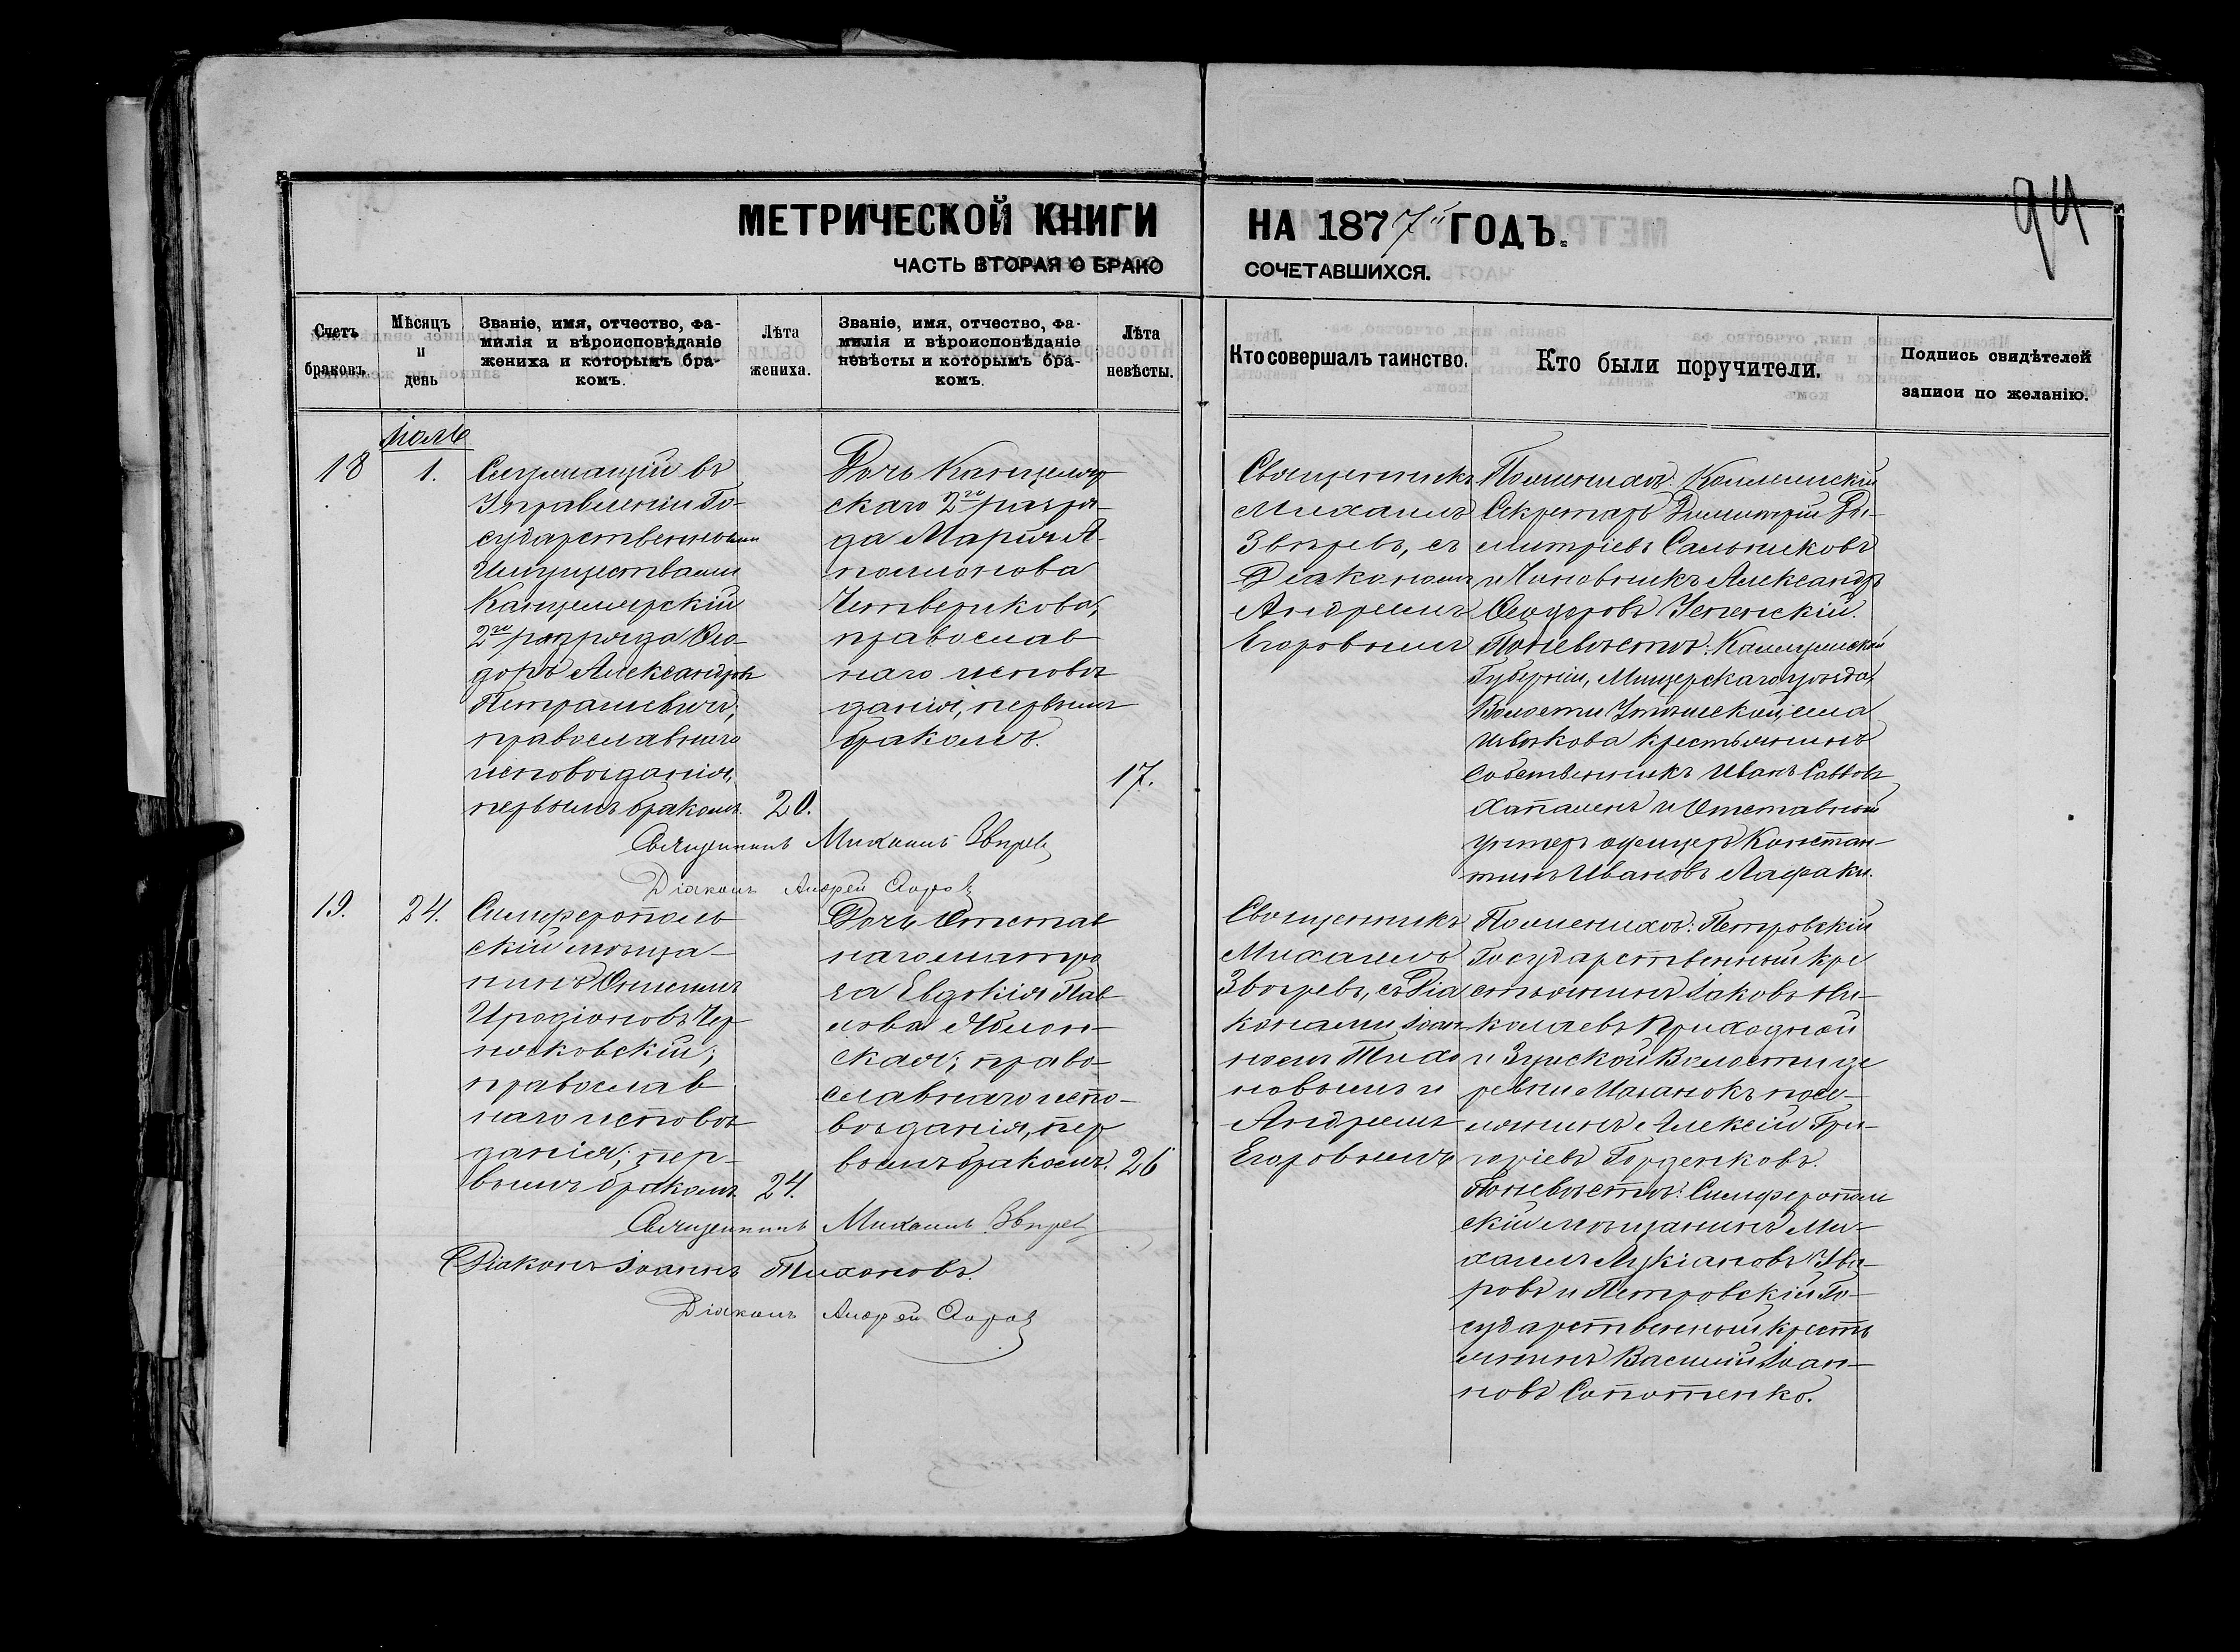 94
МЕТРИЧЕСКОЙ КНИГИ НА 1877й ГОДЪ.
ЧАСТЬ ВТОРАЯ О БРАКОСОЧЕТАВШИХСЯ.
Счетъ браковъ.
Мѣсяцъ и день
Званіе, имя, отчество, фа-
милія и вѣроисповѣданіе
жениха и которымъ бра-
комъ.
Лѣта
жениха.
Званіе, имя, отчество, фа-
милія и вѣроисповѣданіе
невѣсты и которымъ бра-
комъ.
Лѣта
невѣсты.
Кто совершалъ таинство.
Кто были поручители.
Подпись свидѣтелей
записи по желанію.
18
1.
Служащій въ
Управленіи Го-
сударственными
Имуществами
Канцелярскій
2го разряда Ѳео-
доръ Александровъ
православнаго
исповѣданія,
первымъ бракомъ.
20.
Дочь Канцеляр
скаго 2го разря-
да Марія А-
поллонова
Четверикова,
православ
наго исповѣ
данія, первымъ
бракомъ.
17.
Священникъ
Михаилъ
Звѣревъ, съ
Діакономъ
Андреемъ
Егоровымъ
По женихѣ: Коллежскій
Секретарь Димитрій Ди-
митріевъ Сальниковъ
и Чиновникъ Александръ
Ѳеодоровъ
По невѣстѣ:
Губерніи, уѣзда,
Волости села
крестьянинъ
собственникъ Иванъ Саввовъ
и Отставной
унтеръ офицеръ Констан-
тинъ Ивановъ
Священникъ Михаилъ Звѣревъ
Діаконъ Андрей Егоровъ
19.
24.
Симферополь
скій мѣща-
нинъ Онисимъ
Иродіоновъ Чер
няховскій;
православ
наго исповѣ
данія; пер-
вымъ бракомъ
24.
Дочь Отстав
наго матро
са Евдокія Пав
лова
ская; право-
славнаго испо-
вѣданія, пер
вымъ бракомъ.
26
Священникъ
Михаилъ
Звѣревъ, съ Діа
конами Іоан
номъ Тихо
новымъ и
Андреемъ
Егоровымъ
По женихѣ: Петровскій
Государственный кре
стьянинъ Іаковъ Ни-
колаевъ Приходной
и Зуйской Волости де
ревни посе-
лянинъ Алексій Гри-
горіевъ Горденковъ.
По невѣстѣ: Симферополь
скій мѣщанинъ Ми-
хаилъ Лукіановъ Ува-
ровъ и Петровскій Го-
сударственный кресть
янинъ Василій Іоан-
новъ Сопотенко.
Священникъ Михаилъ Звѣревъ
Діаконъ Іоаннъ Тихоновъ.
Діаконъ Андрей Егоровъ